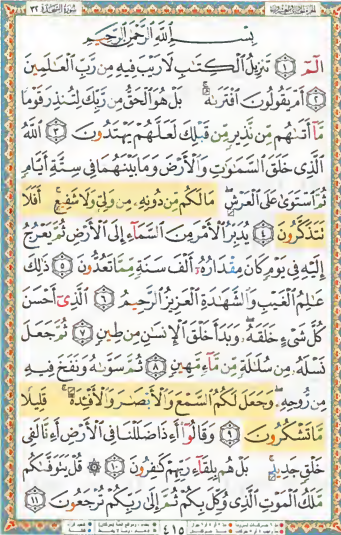 سُورَةُ السَّجۡدَةِ ٣٢
بِسۡمِ ٱللَّهِ ٱلرَّحۡمَٰنِ ٱلرَّحِيمِ
الٓمٓ ١ تَنزِيلُ ٱلۡكِتَٰبِ لَا رَيۡبَ فِيهِ مِن رَّبِّ ٱلۡعَٰلَمِينَ
٢ أَمۡ يَقُولُونَ ٱفۡتَرَىٰهُۚ بَلۡ هُوَ ٱلۡحَقُّ مِن رَّبِّكَ لِتُنذِرَ قَوۡمٗا
مَّآ أَتَىٰهُم مِّن نَّذِيرٖ مِّن قَبۡلِكَ لَعَلَّهُمۡ يَهۡتَدُونَ ٣ ٱللَّهُ
ٱلَّذِي خَلَقَ ٱلسَّمَٰوَٰتِ وَٱلۡأَرۡضَ وَمَا بَيۡنَهُمَا فِي سِتَّةِ أَيَّامٖ
ثُمَّ ٱسۡتَوَىٰ عَلَى ٱلۡعَرۡشِۖ مَا لَكُم مِّن دُونِهِۦ مِن وَلِيّٖ وَلَا شَفِيعٍۚ أَفَلَا
تَتَذَكَّرُونَ ٤ يُدَبِّرُ ٱلۡأَمۡرَ مِنَ ٱلسَّمَآءِ إِلَى ٱلۡأَرۡضِ ثُمَّ يَعۡرُجُ
إِلَيۡهِ فِي يَوۡمٖ كَانَ مِقۡدَارُهُۥٓ أَلۡفَ سَنَةٖ مِّمَّا تَعُدُّونَ ٥ ذَٰلِكَ
عَٰلِمُ ٱلۡغَيۡبِ وَٱلشَّهَٰدَةِ ٱلۡعَزِيزُ ٱلرَّحِيمُ ٦ ٱلَّذِيٓ أَحۡسَنَ
كُلَّ شَيۡءٍ خَلَقَهُۥۖ وَبَدَأَ خَلۡقَ ٱلۡإِنسَٰنِ مِن طِينٖ ٧ ثُمَّ جَعَلَ
نَسۡلَهُۥ مِن سُلَٰلَةٖ مِّن مَّآءٖ مَّهِينٖ ٨ ثُمَّ سَوَّىٰهُ وَنَفَخَ فِيهِ
مِن رُّوحِهِۦۖ وَجَعَلَ لَكُمُ ٱلسَّمۡعَ وَٱلۡأَبۡصَٰرَ وَٱلۡأَفۡـِٔدَةَۚ قَلِيلٗا
مَّا تَشۡكُرُونَ ٩ وَقَالُوٓاْ أَءِذَا ضَلَلۡنَا فِي ٱلۡأَرۡضِ أَءِنَّا لَفِي
خَلۡقٖ جَدِيدِۭۚ بَلۡ هُم بِلِقَآءِ رَبِّهِمۡ كَٰفِرُونَ ١٠ ۞ قُلۡ يَتَوَفَّىٰكُم
مَّلَكُ ٱلۡمَوۡتِ ٱلَّذِي وُكِّلَ بِكُمۡ ثُمَّ إِلَىٰ رَبِّكُمۡ تُرۡجَعُونَ ١١
٤١٥